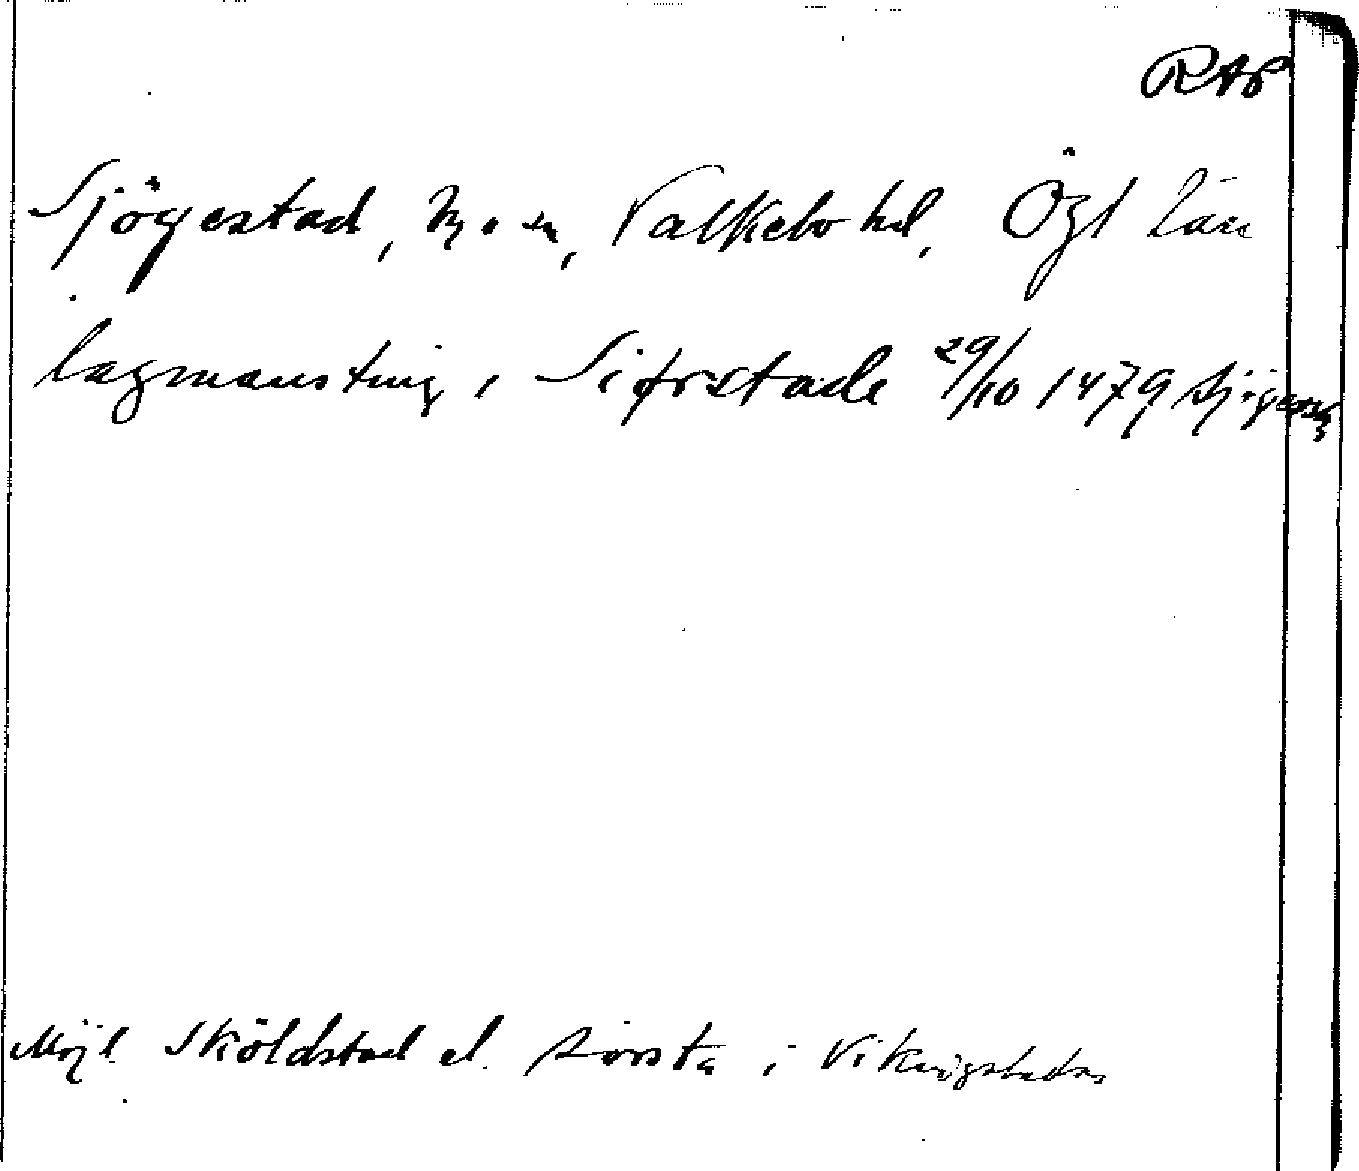 RAP
Sjögestad, by o sn, Valkebo hd, Ögl län
lagmansting i Siørstade 29/10 1479
Möjl. Sköldstad el. Sörsta i Vikingstad sn